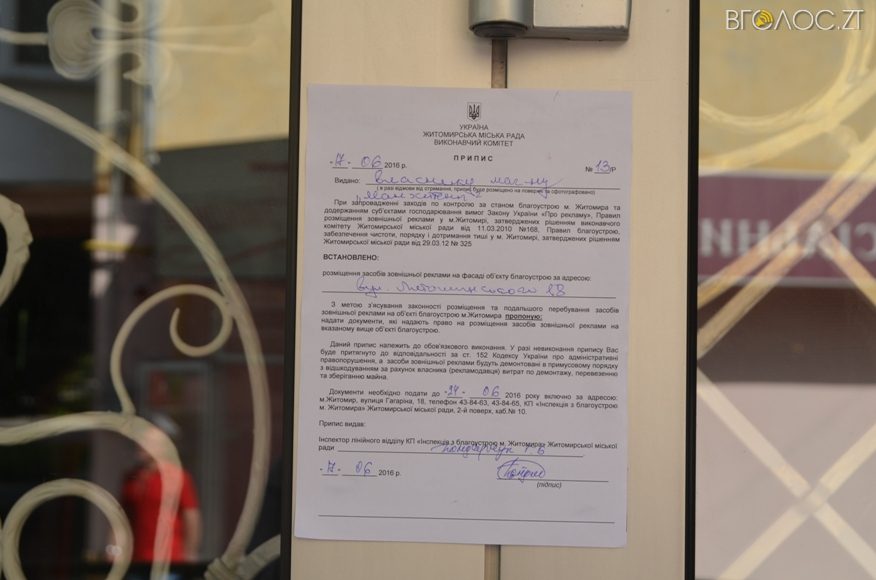 ВГОЛОС.ZT
УКРАЇНА
ЖИТОМИРСЬКА МІСЬКА РАДА
ВИКОНАВЧИЙ КОМІТЕТ
ПРИПИС
17 06 2016 р. № 13/Р
Видано: власнику маг-ну
( в разі відмови від отримання, припис буде розміщено на поверхні та сфотографовано)
При запровадженні заходів по контролю за станом благоустрою м. Житомира та
додержанням суб'єктами господарювання вимог Закону України «Про рекламу», Правил
розміщення зовнішньої реклами у м.Житомирі, затверджених рішенням виконавчого
комітету Житомирської міської ради від 11.03.2010 №168, Правил благоустрою,
забезпечення чистоти, порядку і дотримання тиші у м. Житомирі, затверджених рішенням
Житомирської міської ради від 29.03.12 № 325
ВСТАНОВЛЕНО:
розміщення засобів зовнішньої реклами на фасаді об'єкту благоустрою за адресою:
вул.
З метою з'ясування законності розміщення та подальшого перебування засобів
зовнішньої реклами на об'єкті благоустрою м.Житомира пропоную:
надати документи, які надають право на розміщення засобів зовнішньої реклами на
вказаному вище об'єкті благоустрою.
Даний припис належить до обов'язкового виконання. У разі невиконання припису Вас
буде притягнуто до відповідальності за ст. 152 Кодексу України про адміністративні
правопорушення, а засоби зовнішньої реклами будуть демонтовані в примусовому порядку
з відшкодуванням за рахунок власника (рекламодавця) витрат по демонтажу, перевезенню
та зберіганню майна.
Документи необхідно подати до 06 2016 року включно за адресою:
м.Житомир, вулиця Гагаріна, 18, телефон 43-84-63, 43-84-65, КП «Інспекція з благоустрою
м. Житомира» Житомирської міської ради, 2-й поверх, каб.№ 10.
Припис видав:
Інспектор лінійного відділу КП «Інспекція з благоустрою м. Житомира» Житомирської міської
ради
17 06 2016 р.
(підпис)